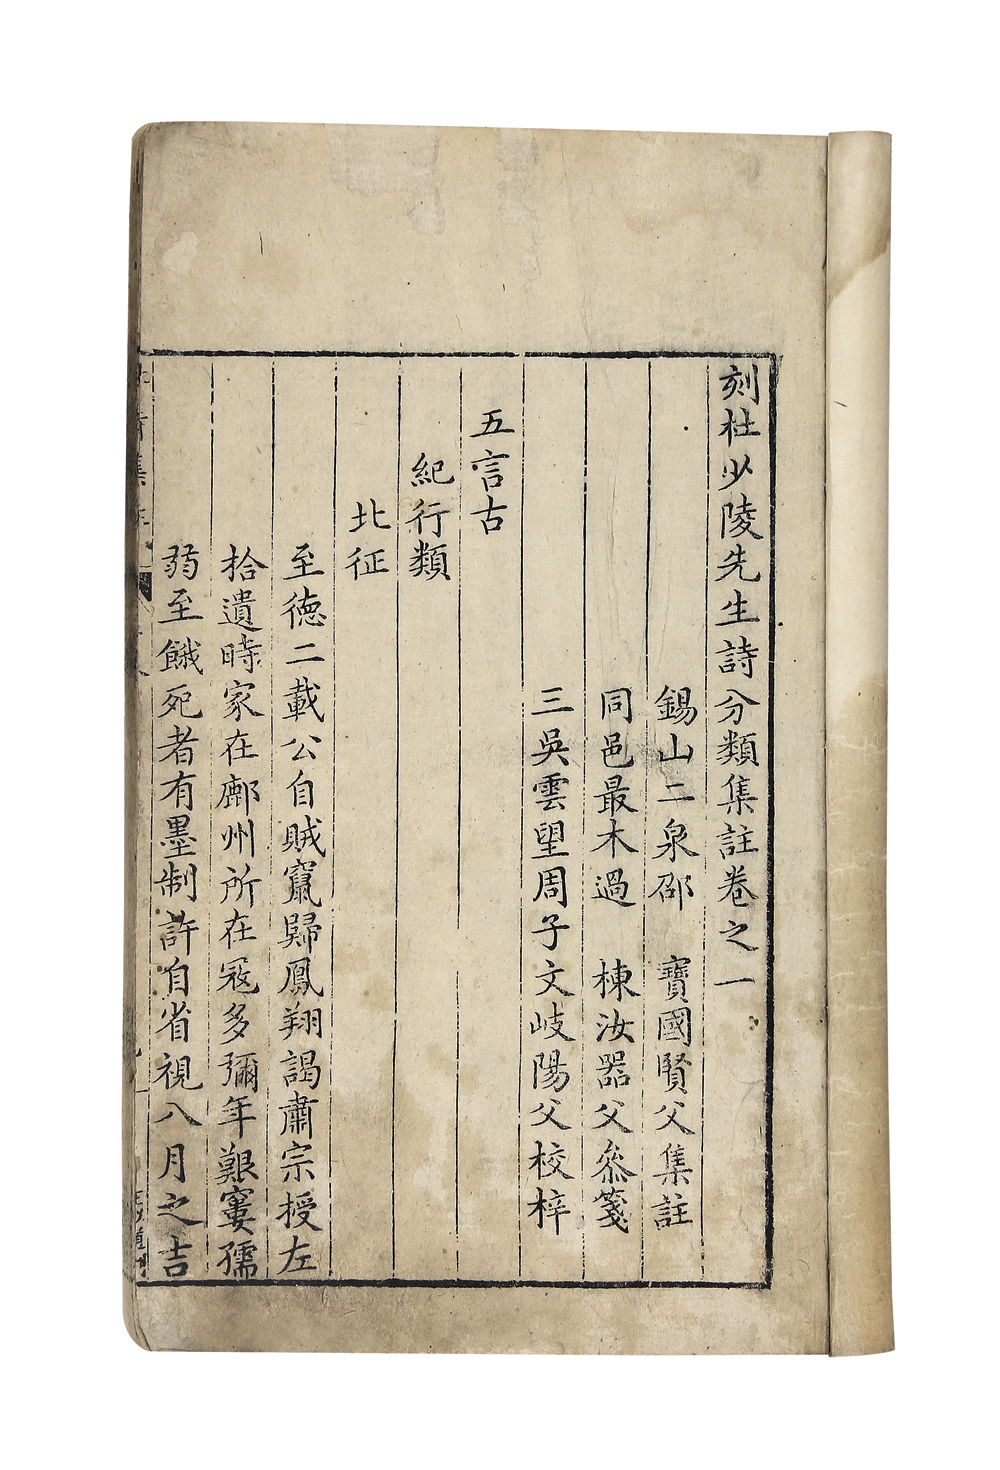 刻杜少陵先生詩分類集註卷之一
錫山二泉邵 寶國賢父集註
同邑最木過 棟汝器父叅箋
三吳雲望周子文岐陽父校梓
五言古
紀行類
北征
至德二載公自賊竄歸鳳翔謁肅宗授左
拾遺時家在鄜州所在寇多彌年艱窶孺
弱至餓死者有墨制許自省視八月之吉